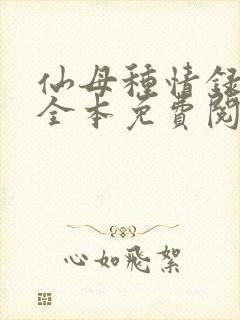 仙母種情録
全本免費閱
心如飛絮